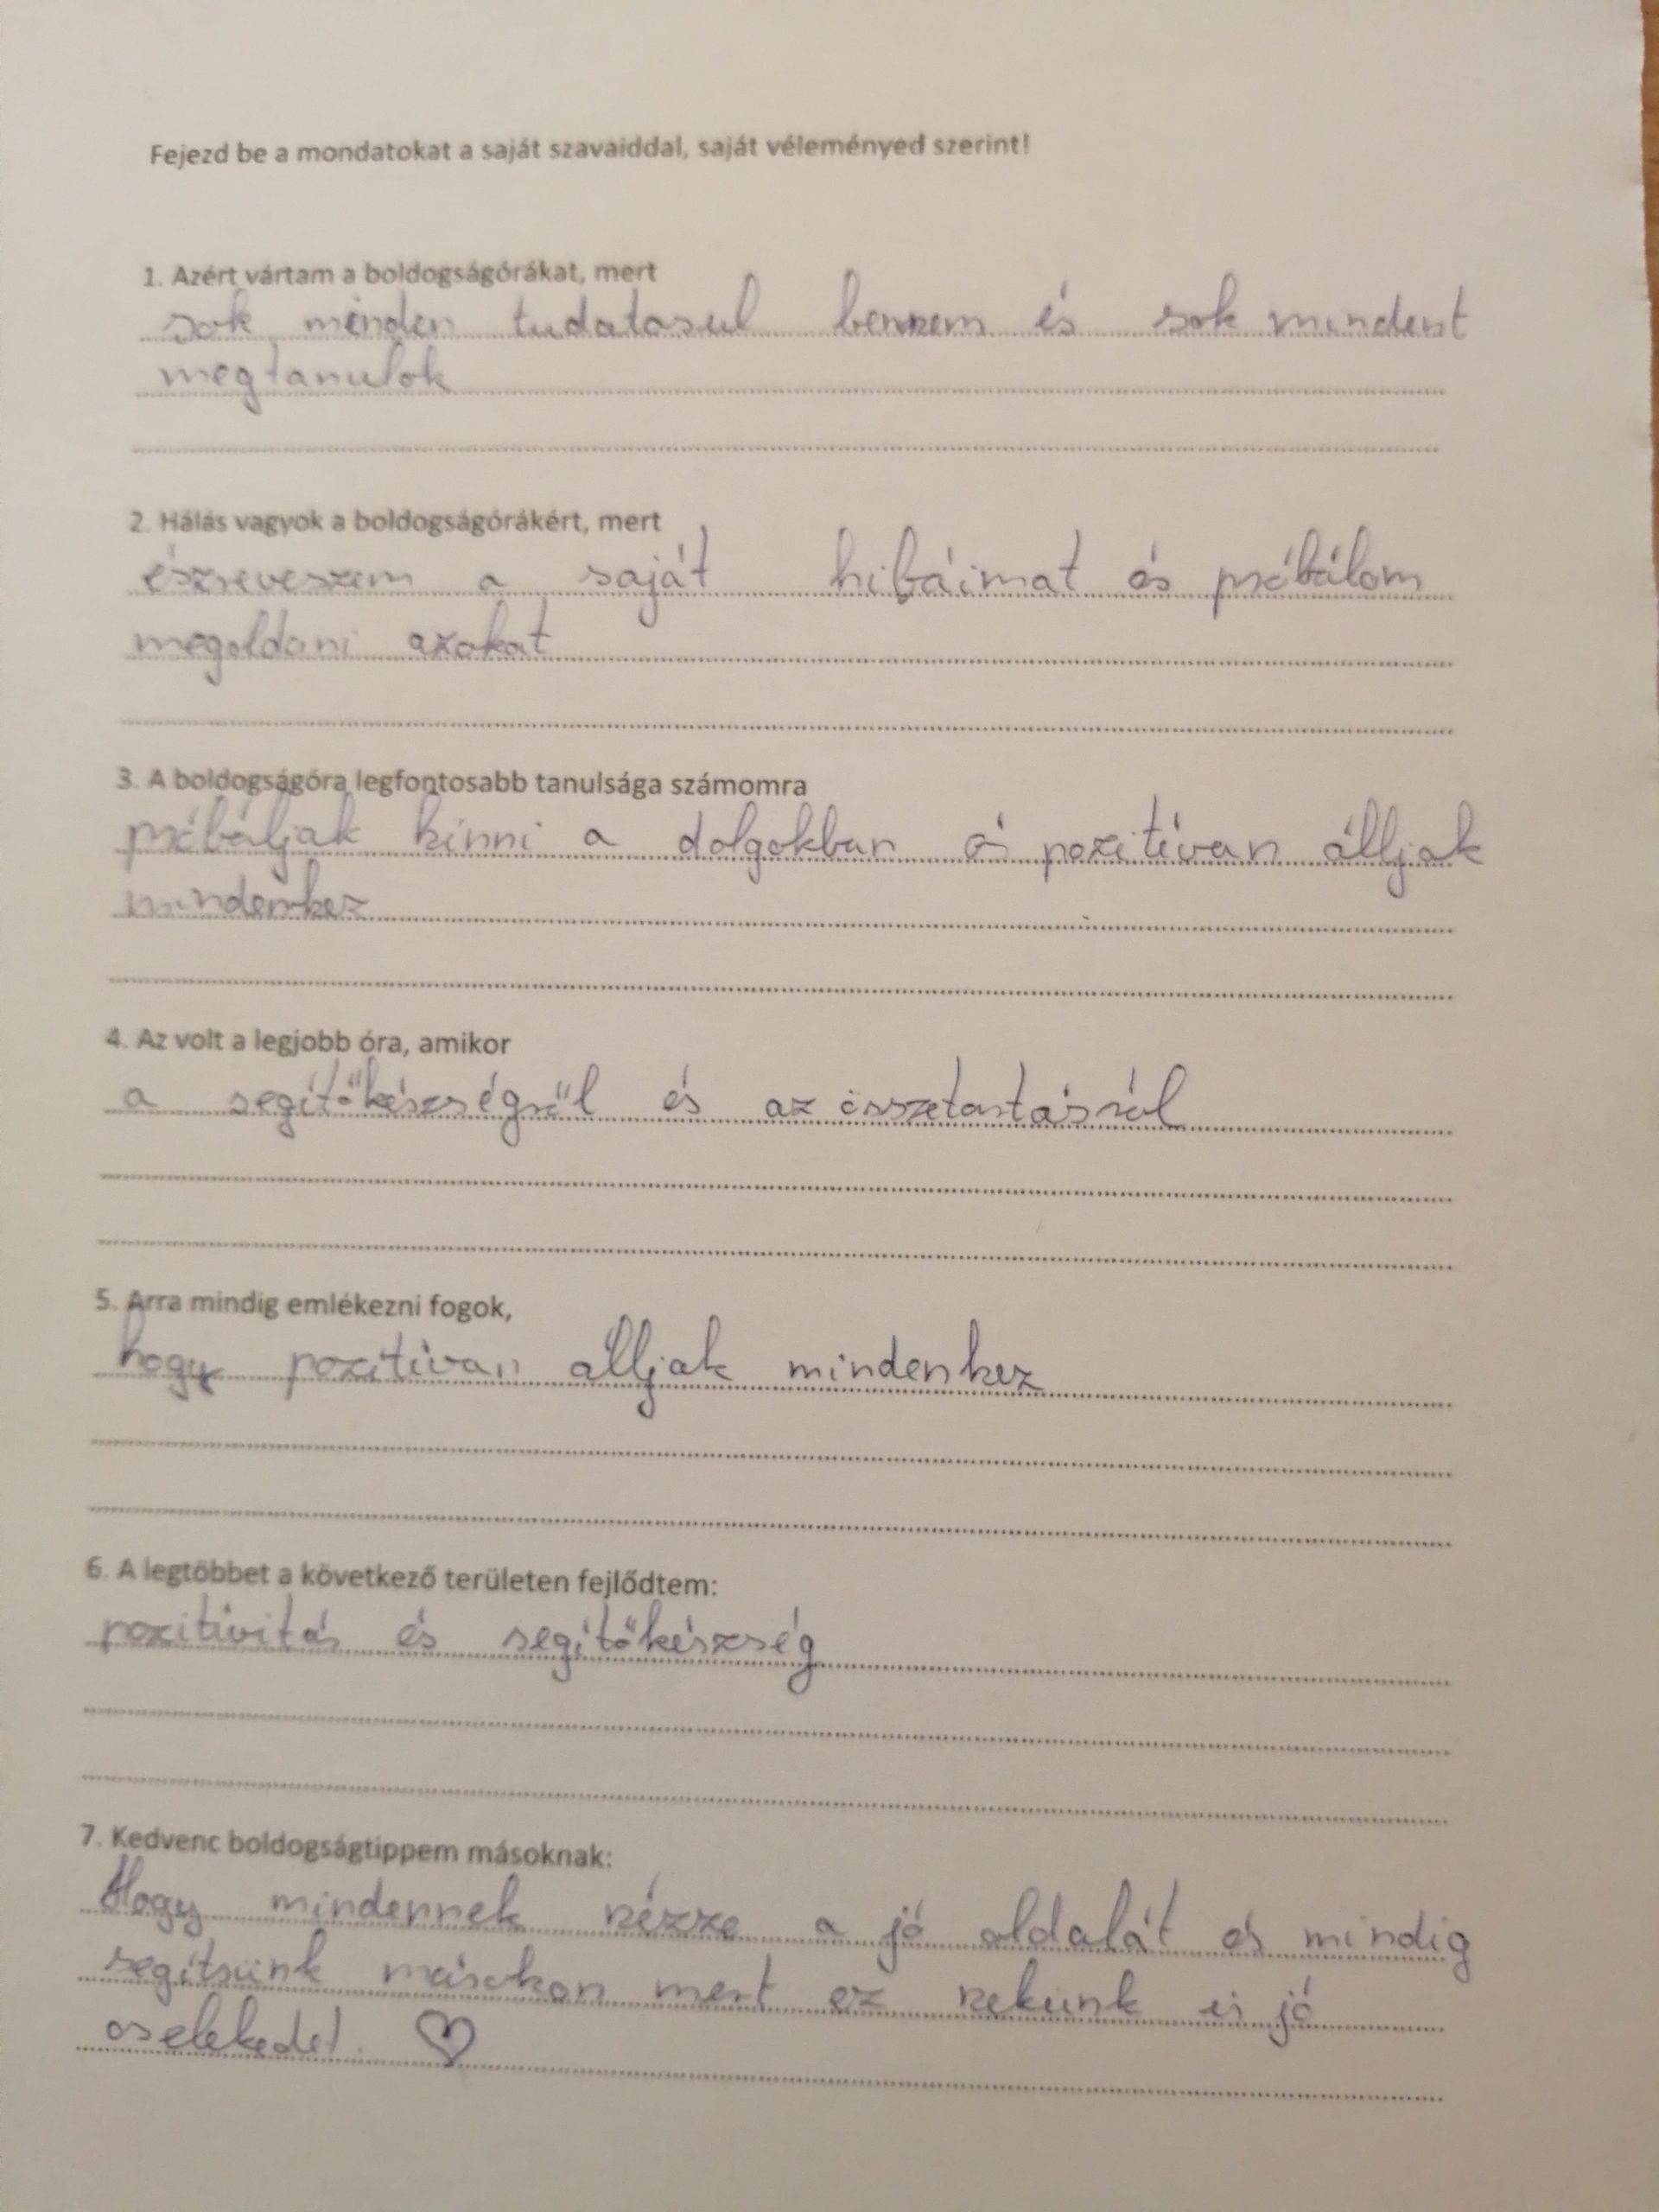 Fejezd be a mondatokat a saját szavaiddal, saját véleményed szerint!
1. Azért vártam a boldogságórákat, mert
sok minden tudatosul bennem és sok mindent
megtanulok
2. Hálás vagyok a boldogságórákért, mert
észreveszem a saját hibáimat és próbálom
megoldani azokat
3. A boldogságóra legfontosabb tanulsága számomra
próbáljak hinni a dolgokban és pozitívan álljak
mindenhez
4. Az volt a legjobb óra, amikor
a segítőkészségről és az összetartásról
5. Arra mindig emlékezni fogok,
hogy pozitívan álljak mindenhez
6. A legtöbbet a következő területen fejlődtem:
pozitívitás és segítőkészség
7. Kedvenc boldogságtippem másoknak:
Hogy mindennek nézze a jó oldalát és mindig
segítsünk másokon mert ez nekünk is jó
cselekedet. ♡